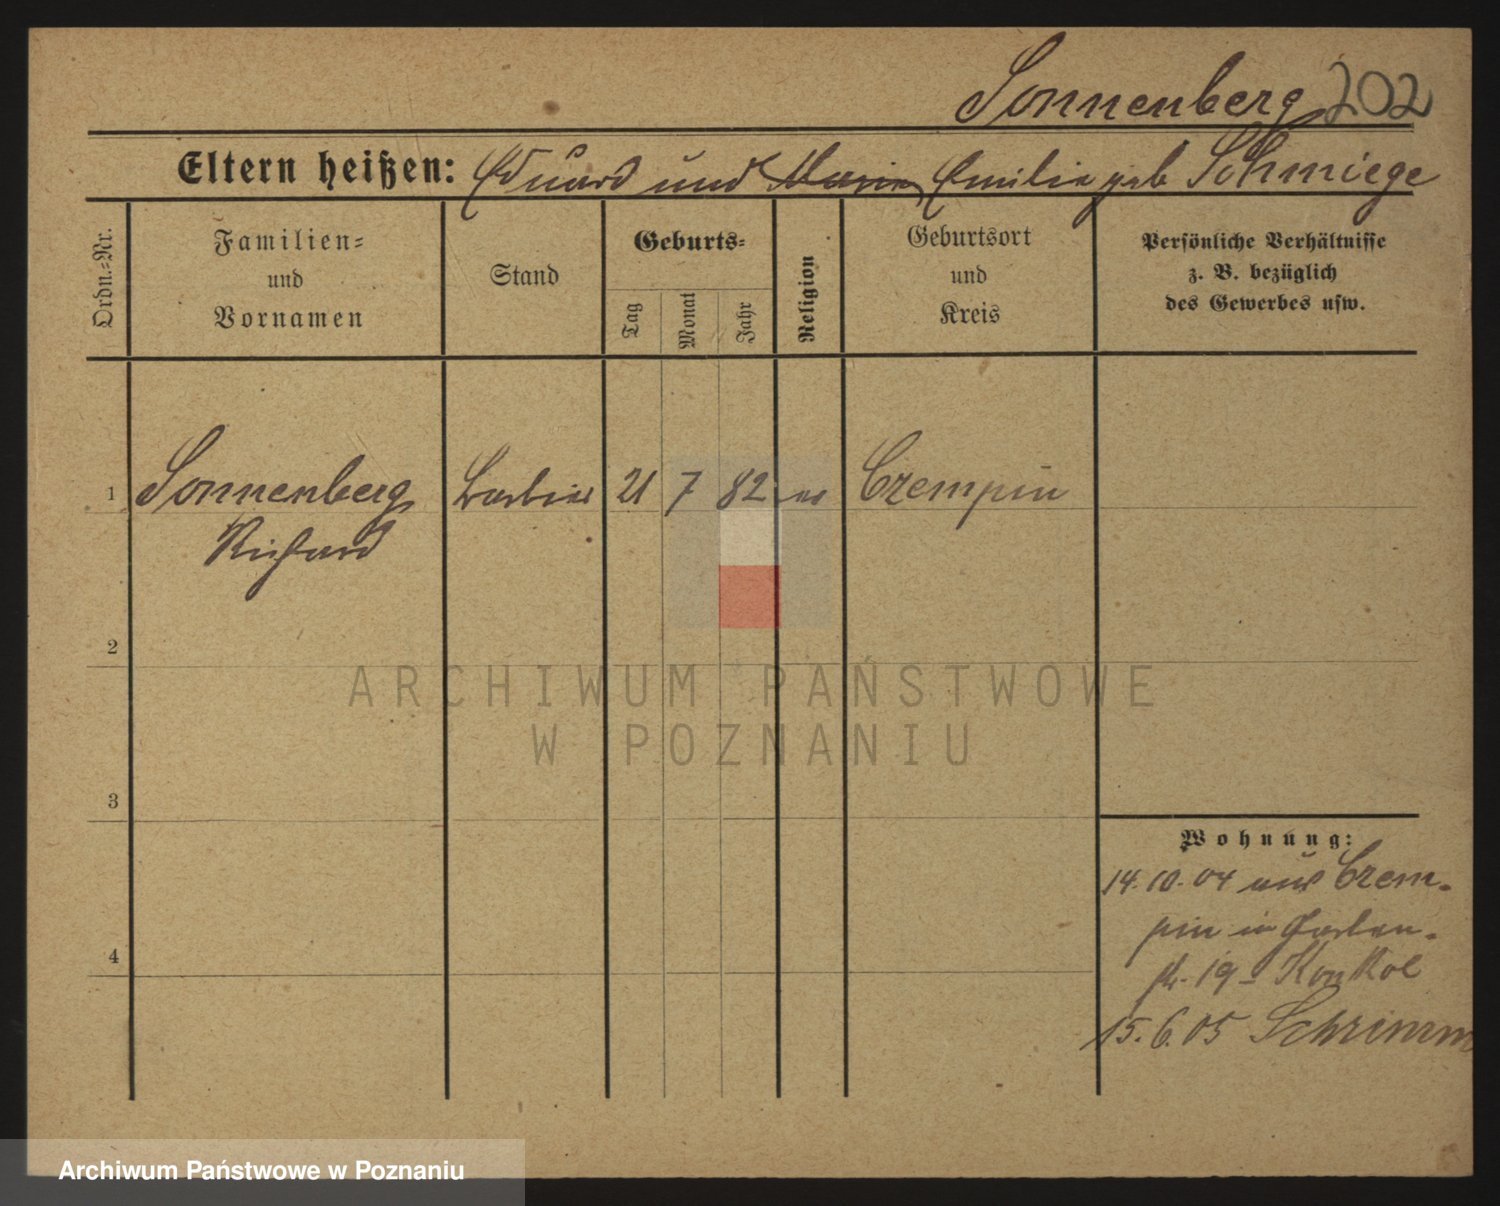 Sonnenberg 202
Eltern heißen: Eduard und Marie, Emilie geb Schmiege
Ordn.-Nr.
Familien-
und
Vornamen
Stand
Geburts-
Tag
Monat
Jahr
Religion
Geburtsort
und
Kreis
Persönliche Verhältnisse
z. B. bezüglich
des Gewerbes usw.
1 Sonnenberg Barbier 21 7 82 ev Czempin
Richard
2
ARCHIWUM PAŃSTWOWE
W POZNANIU
3
Wohnung:
14.10.04 aus Czem-
pin in Garten-
str. 19
4
15.6.05 Schrimm
Archiwum Państwowe w Poznaniu